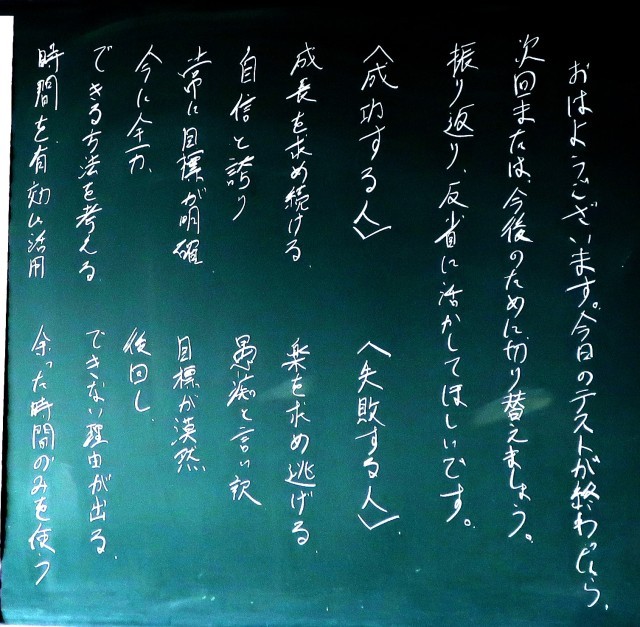 おはようございます。今日のテストが終わったら、
次回または、今後のために切り替えましょう。
振り返り、反省に活かしてほしいです。
〈成功する人〉
〈失敗する人〉
成長を求め続ける。
楽を求め逃げる。
自信と誇り
愚痴と言い訳
常に目標が明確
目標が漠然
今に全力
後回し
できる方法を考える
できない理由が出る。
時間を有効に活用
余った時間のみを使う